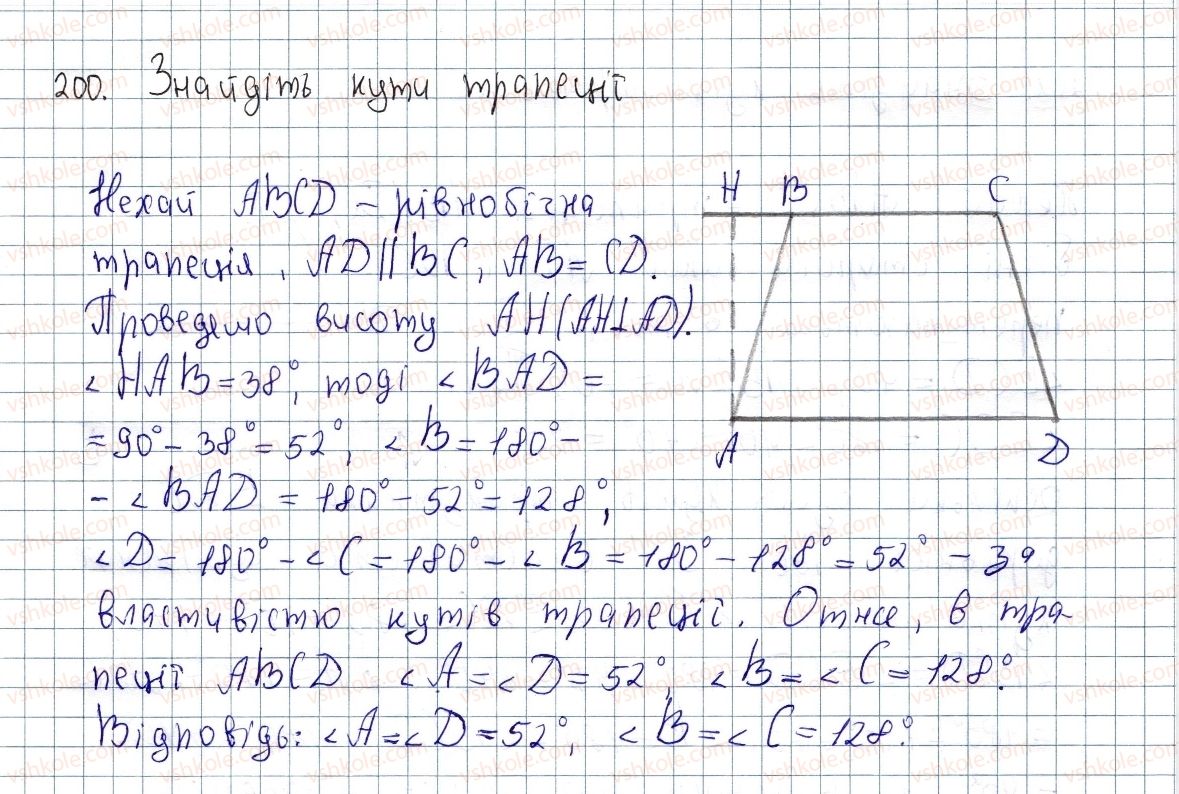 200. Знайдіть кути трапеції
Нехай ABCD – рівнобічна
трапеція, AD||BC, AB=CD.
Проведемо висоту AH(AH⊥AD).
∠HAB=38°, тоді ∠BAD=
=90°-38°=52°, ∠B=180°-
-∠BAD=180°-52°=128°,
∠D=180°-∠C=180°-∠B=180°-128°=52° – за
властивістю кутів трапеції. Отже, в тра-
пеції ABCD ∠A=∠D=52°, ∠B=∠C=128°.
Відповідь: ∠A=∠D=52°, ∠B=∠C=128°.
H B C
A D
vshkole.com